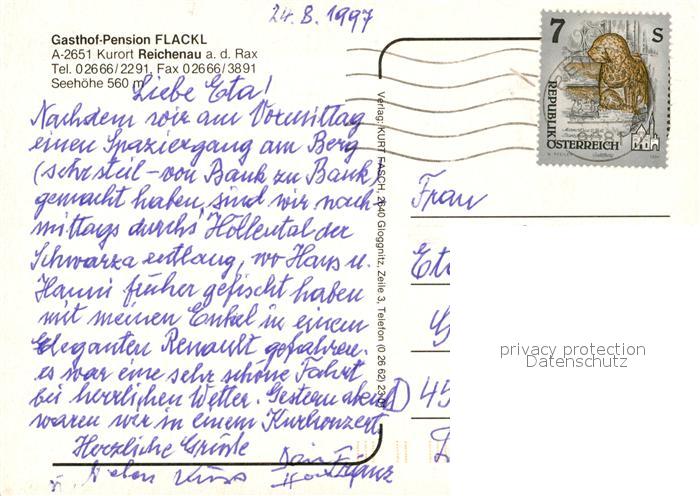 24.8.1997
Gasthof-Pension FLACKL
A-2651 Kurort Reichenau a. d. Rax
Tel. 0 26 66 / 22 91, Fax 0 26 66 / 38 91
Seehöhe 560 m
Liebe Eta!
Nachdem wir am Vormittag
einen Spaziergang am Berg
(sehr steil - von Bank zu Bank)
gemacht haben, sind wir nach-
mittags durchs Höllental der
Schwarza entlang, wo Hans u.
Hanni früher gefischt haben
mit meinen Enkel in einem
Eleganten Renault gefahren.
es war eine sehr schöne Fahrt
bei herrlichen Wetter. Gestern abend
waren wir in einem Kurkonzert
Herzliche Grüße
Franz
Verlag: KURT FASCH, 2640 Gloggnitz, Zeile 3, Telefon (0 26 62)
7 S
REPUBLIK
ÖSTERREICH
Frau
D 45
privacy protection
Datenschutz